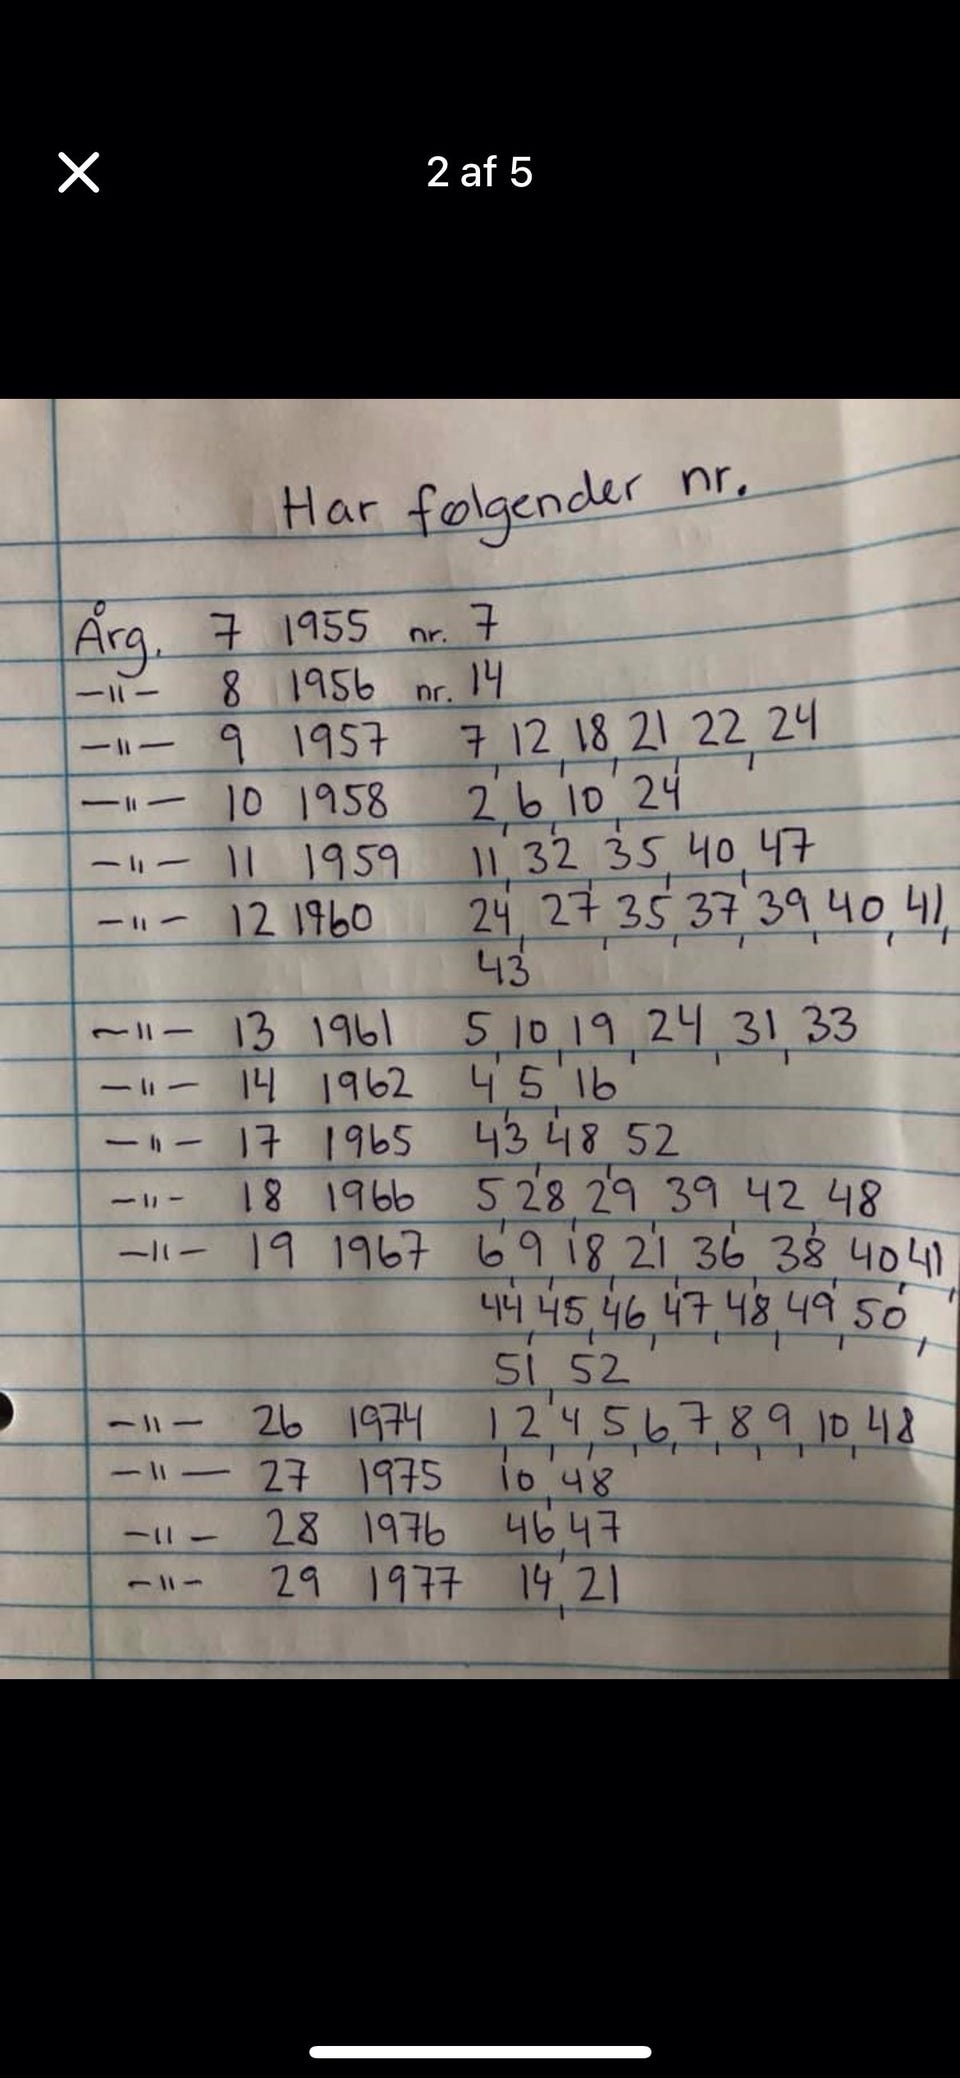 2 af 5
Har følgender nr.
Årg. 7 1955 nr. 7
—"— 8 1956 nr. 14
—"— 9 1957 7, 12, 18, 21, 22, 24
—"— 10 1958 2, 6, 10, 24
—"— 11 1959 11, 32, 35, 40, 47
—"— 12 1960 24, 27, 35, 37, 39, 40, 41,
43
—"— 13 1961 5, 10, 19, 24, 31, 33
—"— 14 1962 4, 5, 16
—"— 17 1965 43, 48, 52
—"— 18 1966 5, 28, 29, 39, 42, 48
—"— 19 1967 6, 9, 18, 21, 36, 38, 40, 41,
44, 45, 46, 47, 48, 49, 50,
51, 52
—"— 26 1974 1, 2, 4, 5, 6, 7, 8, 9, 10, 48
—"— 27 1975 10, 48
—"— 28 1976 46, 47
—"— 29 1977 14, 21